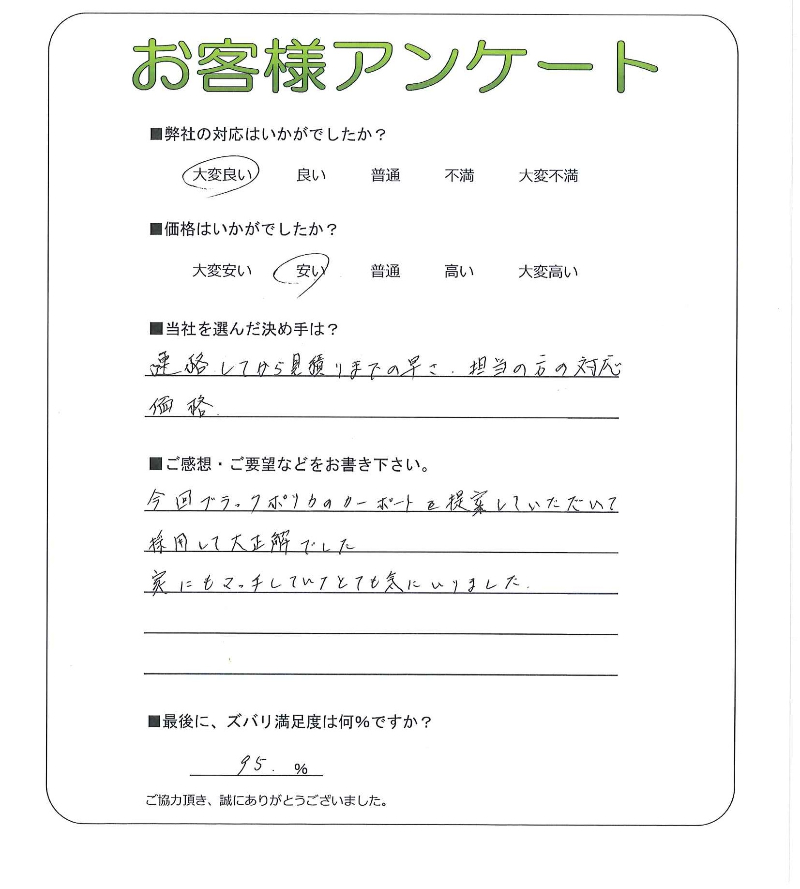 お客様アンケート
■弊社の対応はいかがでしたか？
大変良い 良い 普通 不満 大変不満
■価格はいかがでしたか？
大変安い 安い 普通 高い 大変高い
■当社を選んだ決め手は？
連絡してから見積りまでの早さ、担当の方の対応
価格.
■ご感想・ご要望などをお書き下さい。
今回ブラックポリカのカーポートを提案していただいて
採用して大正解でした
家にもマッチしていてとても気にいりました.
■最後に、ズバリ満足度は何%ですか？
95. %
ご協力頂き、誠にありがとうございました。